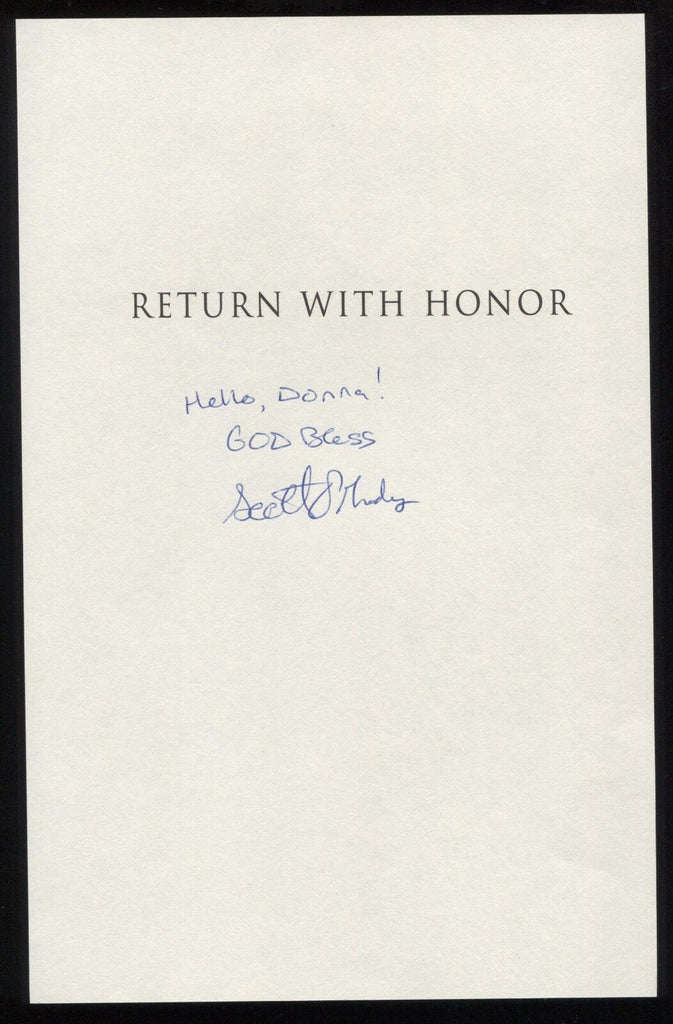 RETURN WITH HONOR
Hello, Donna!
GOD Bless
Scott O'Grady